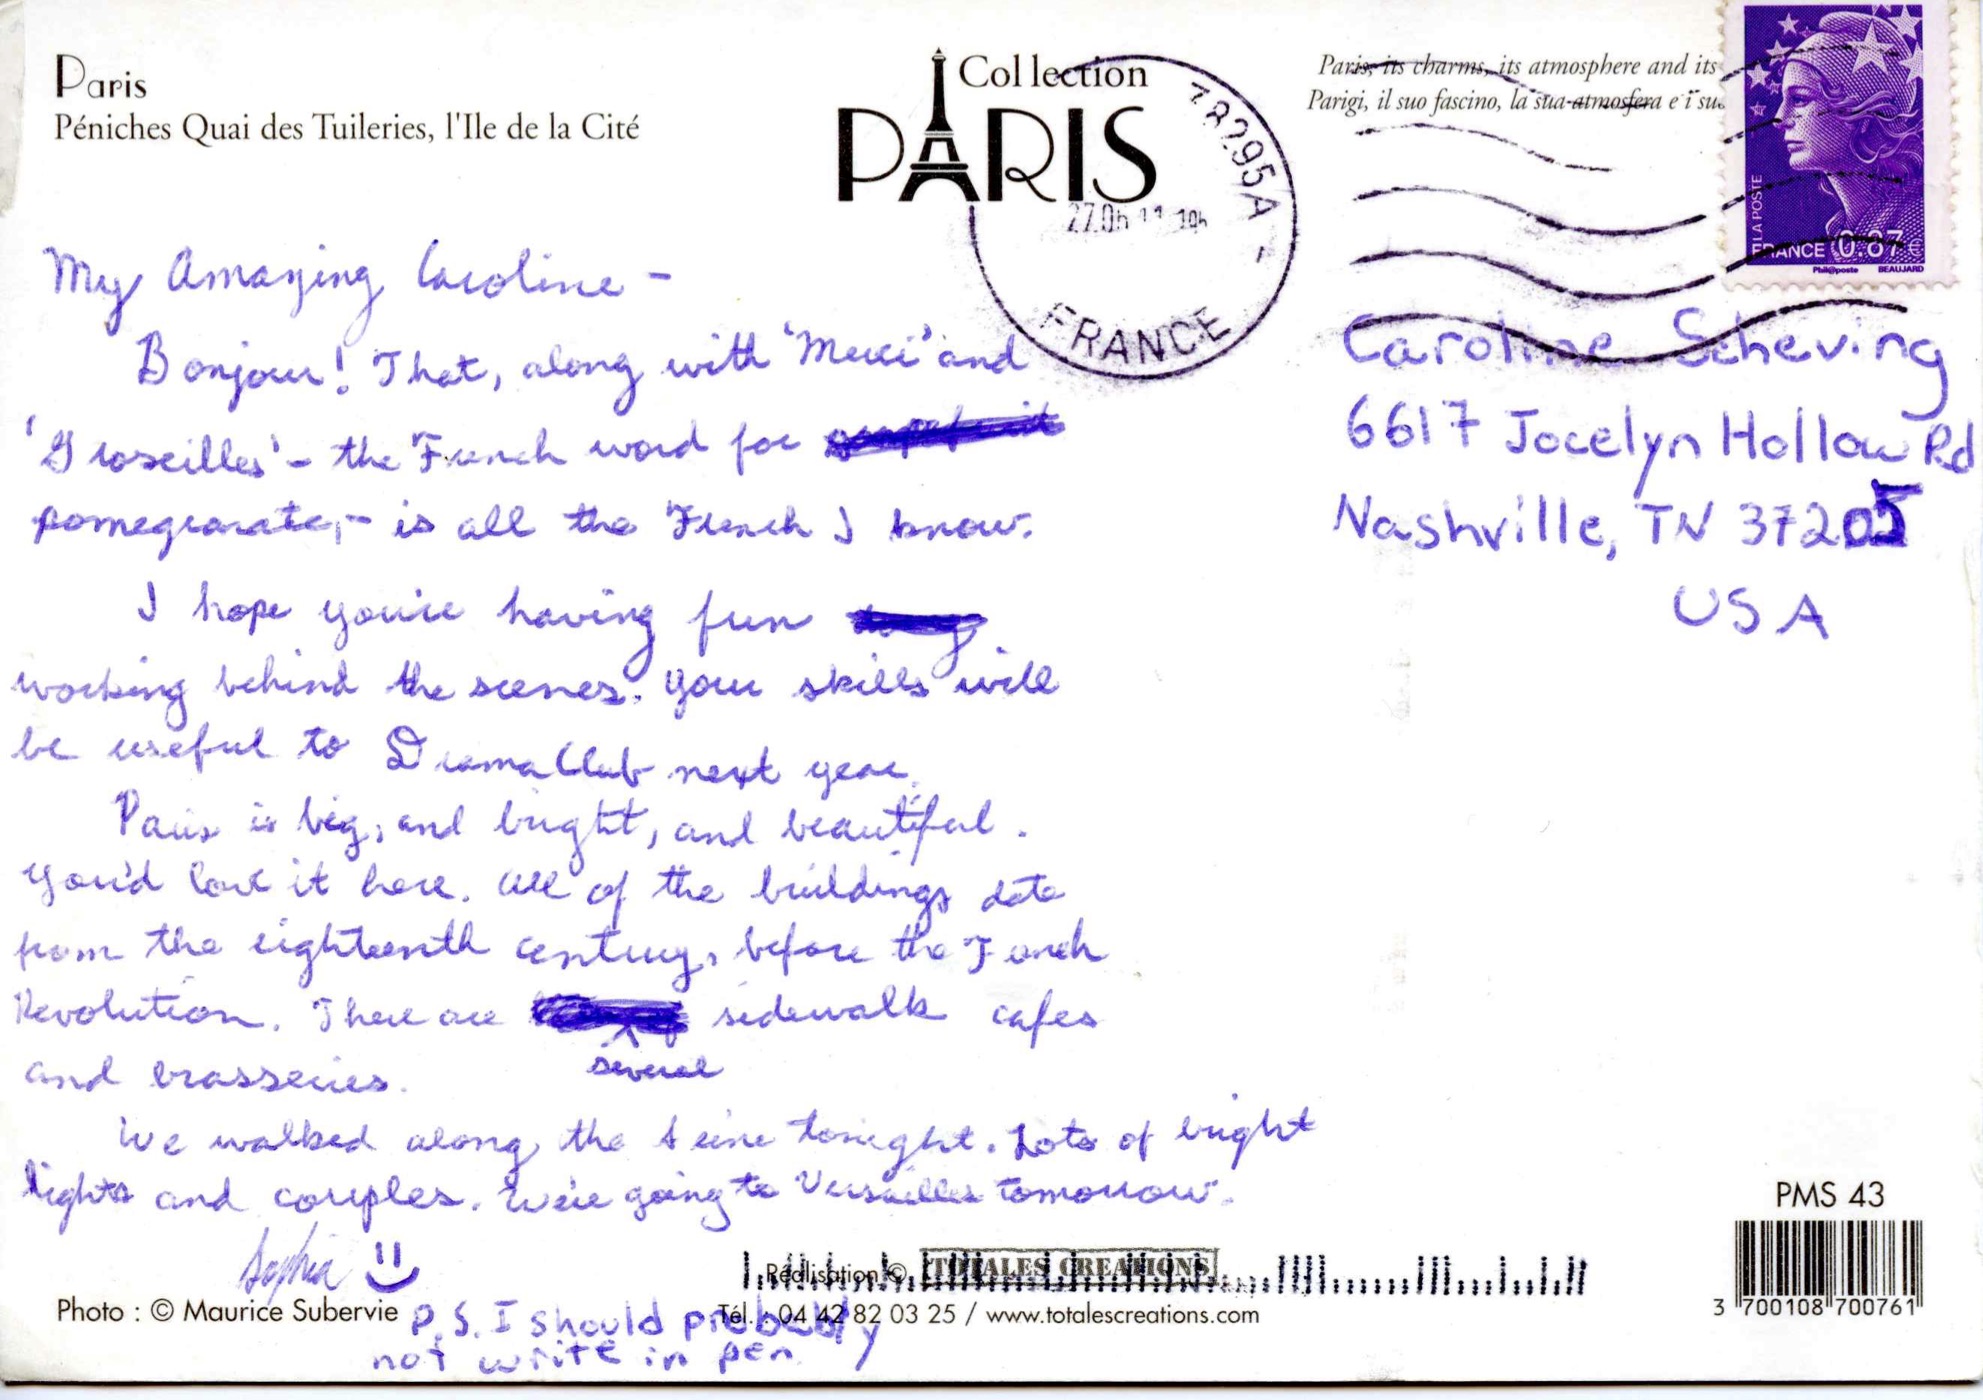 Paris
Péniches Quai des Tuileries, l'Ile de la Cité
Collection
PARIS
Paris, its charms, its atmosphere and its
Parigi, il suo fascino, la sua atmosfera e i suo
78295A -
27.06 11 19h
FRANCE
LA POSTE
FRANCE 0.87€
Phil@poste BEAUJARD
My Amazing Caroline -
Bonjour! That, along with 'Merci' and
'Groseilles' - the French word for
pomegranate, - is all the French I know.
I hope you're having fun
working behind the scenes. Your skills will
be useful to Drama Club next year.
Paris is big, and bright, and beautiful.
You'd love it here. All of the buildings date
from the eighteenth century, before the French
Revolution. There are sidewalk cafes
several
and brasseries.
We walked along the Seine tonight. Lots of bright
lights and couples. We're going to Versailles tomorrow.
Sophia
P.S. I should probably
not write in pen.
Caroline Scheving
6617 Jocelyn Hollow Rd
Nashville, TN 37205
USA
Photo : © Maurice Subervie
Réalisation © TOTALES CREATIONS
Tél. : 04 42 82 03 25 / www.totalescreations.com
PMS 43
3 700108 700761